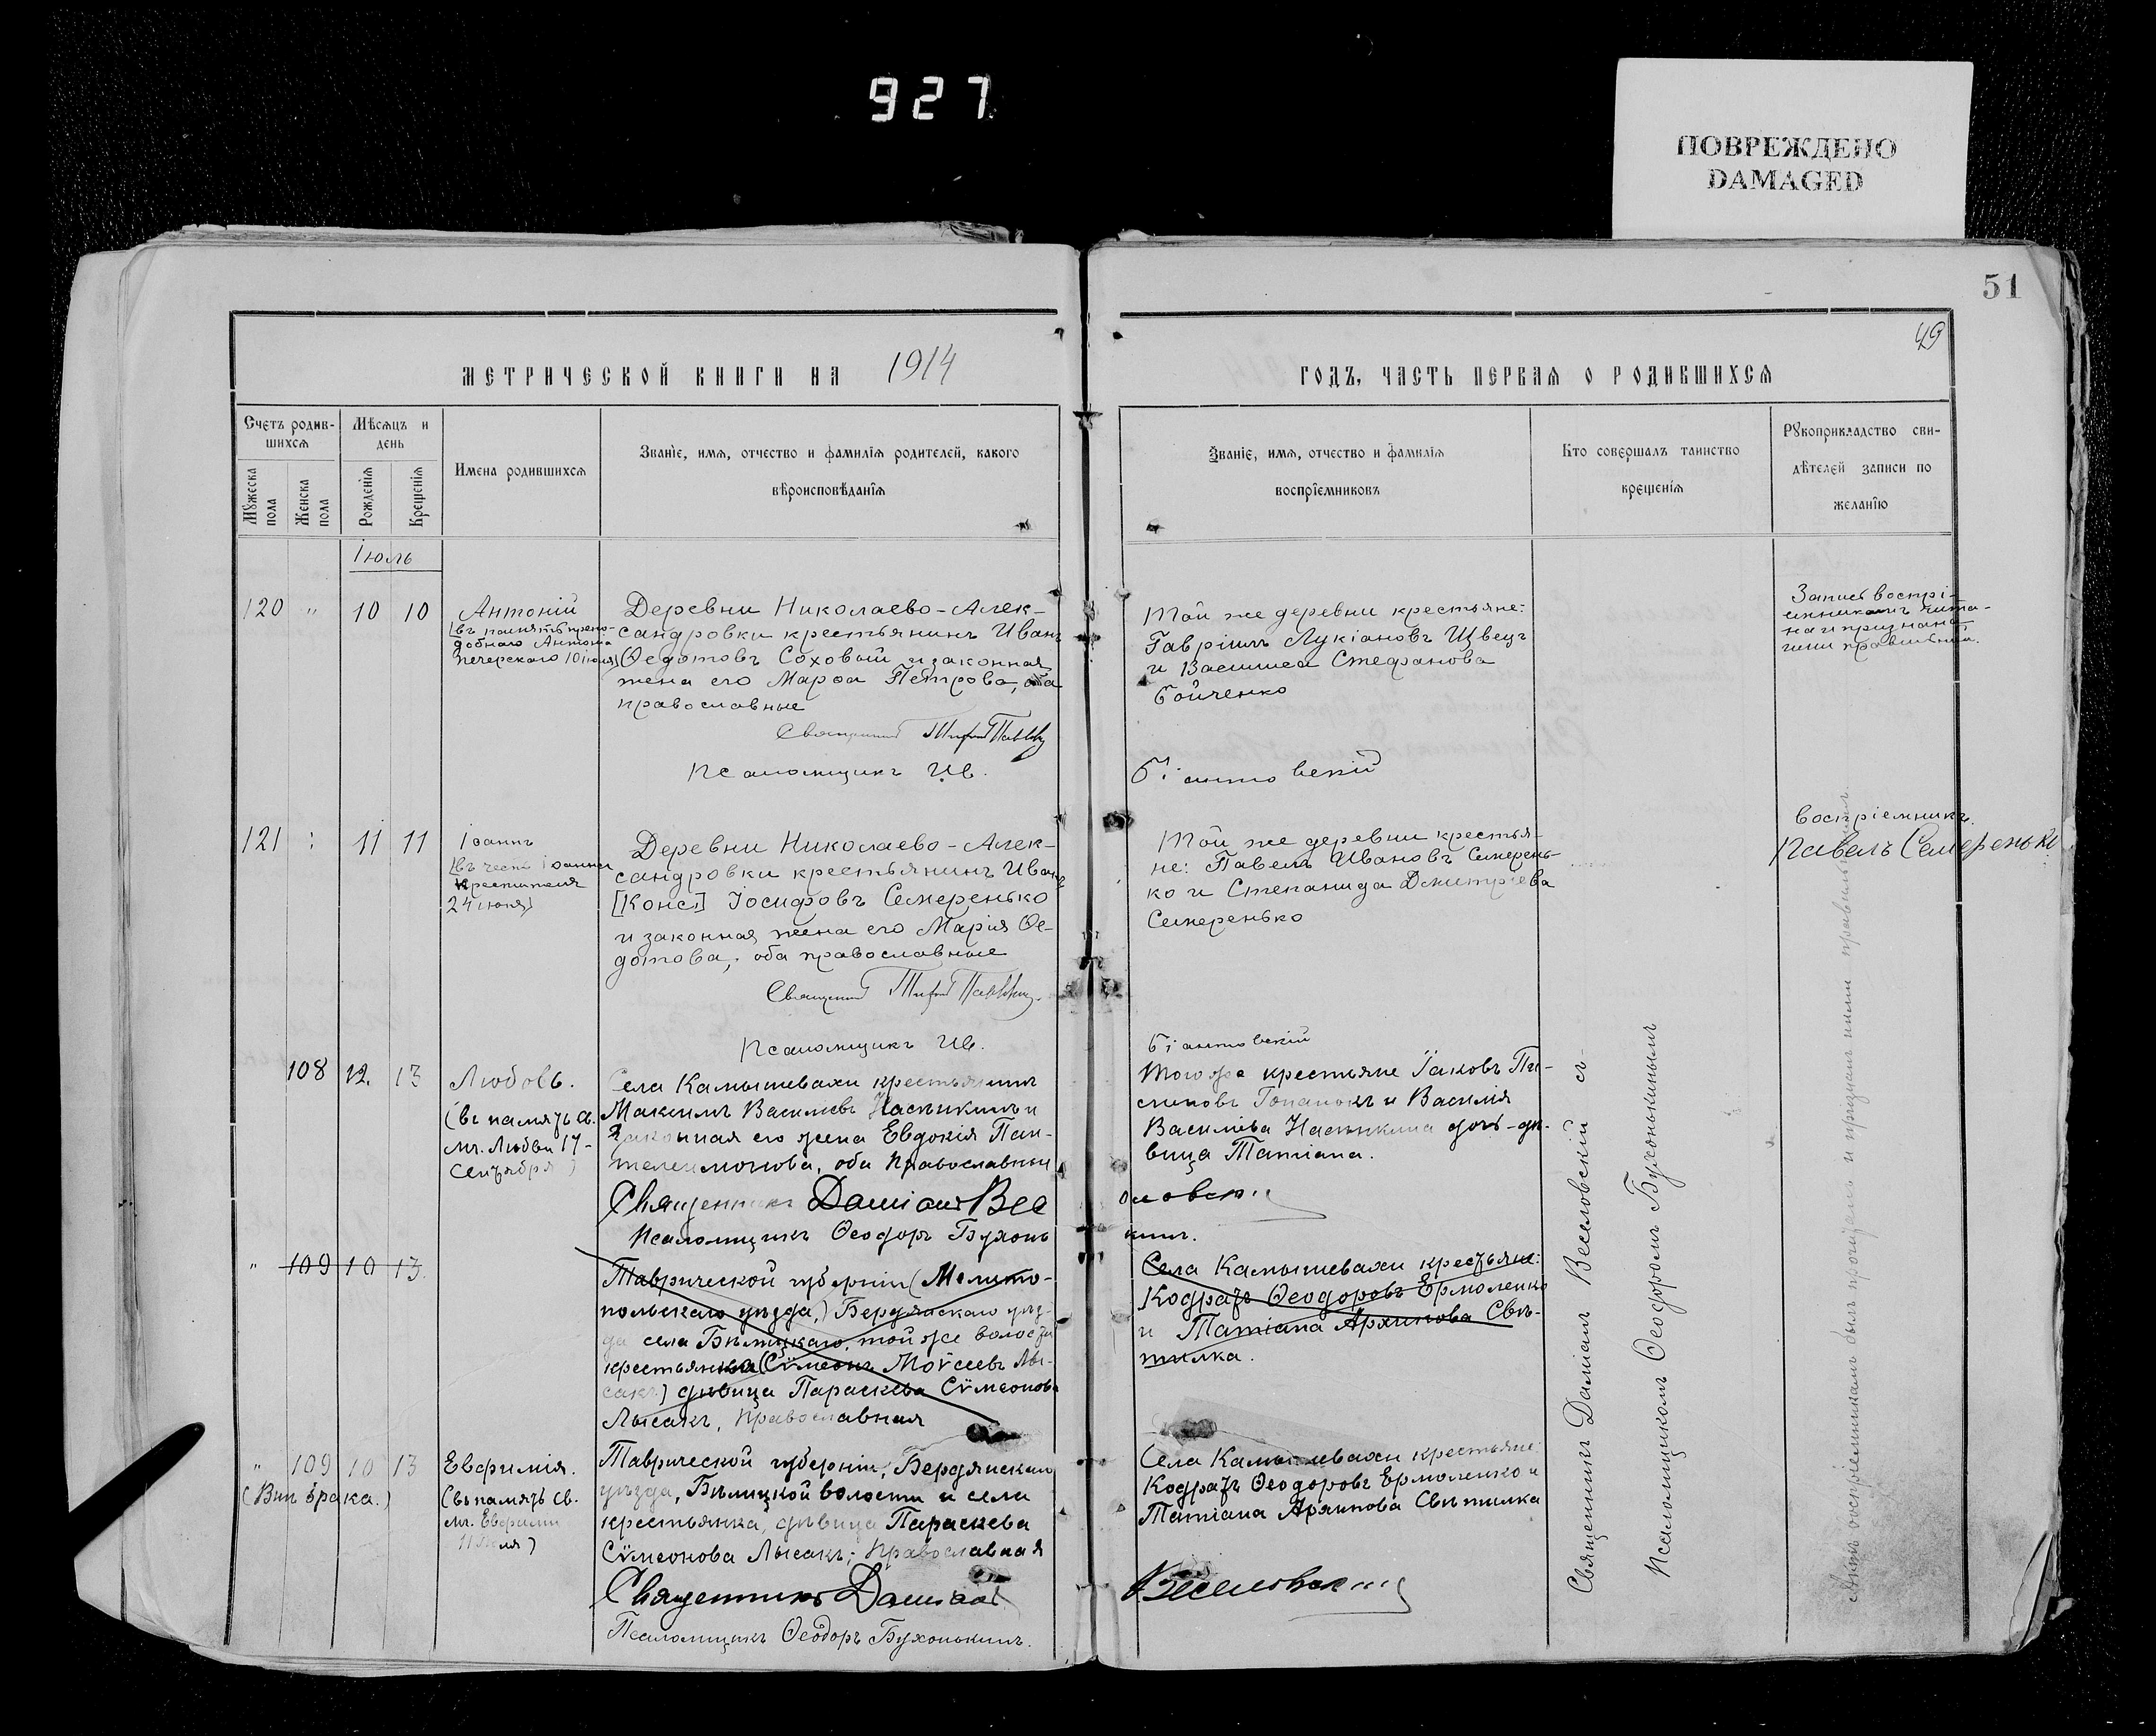 927
ПОВРЕЖДЕНО
DAMAGED
51
49
МЕТРИЧЕСКОЙ КНИГИ НА 1914
ГОДЪ, ЧАСТЬ ПЕРВАЯ О РОДИВШИХСЯ
Счетъ родив-
шихся
Мужеска
пола
Женска
пола
Мѣсяцъ и
день
Рожденія
Крещенія
Имена родившихся
Званіе, имя, отчество и фамилія родителей, какого
вѣроисповѣданія
Званіе, имя, отчество и фамилія
воспріемниковъ
Кто совершалъ таинство
крещенія
Рукоприкладство сви-
дѣтелей записи по
желанію
Іюль
120 " 10 10
Антоній
[въ память препо-
добнаго Антонія
печерскаго 10 іюля]
Деревни Николаево-Алек-
сандровки крестьянинъ Иванъ
Ѳедотовъ Соховый и законная
жена его Марѳа Петрова, оба
православные
Священникъ
Псаломщикъ Ив.
Той же деревни крестьяне:
Гавріилъ Лукіановъ Швецъ
и Василиса Стефанова
Бойченко
Запись воспрі-
емникамъ чита-
на и признана
ими правильной.
121 : 11 11
Іоаннъ
[въ честь Іоанна
Крестителя
24 іюня]
Деревни Николаево-Алек-
сандровки крестьянинъ Иванъ
[Конс.] Іосифовъ Семеренько
и законная жена его Марія Ѳе-
дотова, оба православные
Священникъ
Псаломщикъ Ив.
Той же деревни крестья-
не: Павелъ Ивановъ Семерень-
ко и Степанида Дмитріева
Семеренько
Воспріемникъ
Павелъ Семеренько
108 12. 13
Любовь.
(въ память св.
мч. Любви 17-
Сентября)
Села Камышевахи крестьянинъ
Максимъ Василіевъ Насѣкинъ и
законная его жена Евдокія Пан-
телеимонова, оба Православныи
Священникъ Даміанъ Весе
Псаломщикъ Ѳеодоръ Бухонь
Того же крестьяне Іаковъ
и Василія
Василіева Насѣкина дочь-дѣ-
вица Татіана.
ловскій
кинъ.
" 109 10 13.
Таврической губерніи (Мелито-
польскаго уѣзда,) Бердянскаго уѣз-
да села Бѣлицкаго, той же волости
крестьянка (Сѵмеонъ Моѵсеевъ Лы-
сакъ) дѣвица Параскева Сѵмеонова
Лысакъ, Православная
Села Камышевахи крестьяне:
Кодратъ Ѳеодоровъ Ермоленко
и Татіана Архипова Свѣ-
тилка.
" 109 10 13
(Внѣ брака.)
Евфимія.
(въ память св.
мч. Евфиміи
11 Іюля)
Таврической губерніи, Бердянскаго
уѣзда, Бѣлицкой волости и села
крестьянка, дѣвица Параскева
Сѵмеонова Лысакъ; Православная
Священникъ Даміанъ
Псаломщикъ Ѳеодоръ Бухонькинъ.
Села Камышевахи крестьяне:
Кодратъ Ѳеодоровъ Ермоленко и
Татіана Архипова Свѣтилка
Веселовскій
Священникъ Даміанъ Веселовскій съ
Псаломщикомъ Ѳеодоромъ Бухонькинымъ